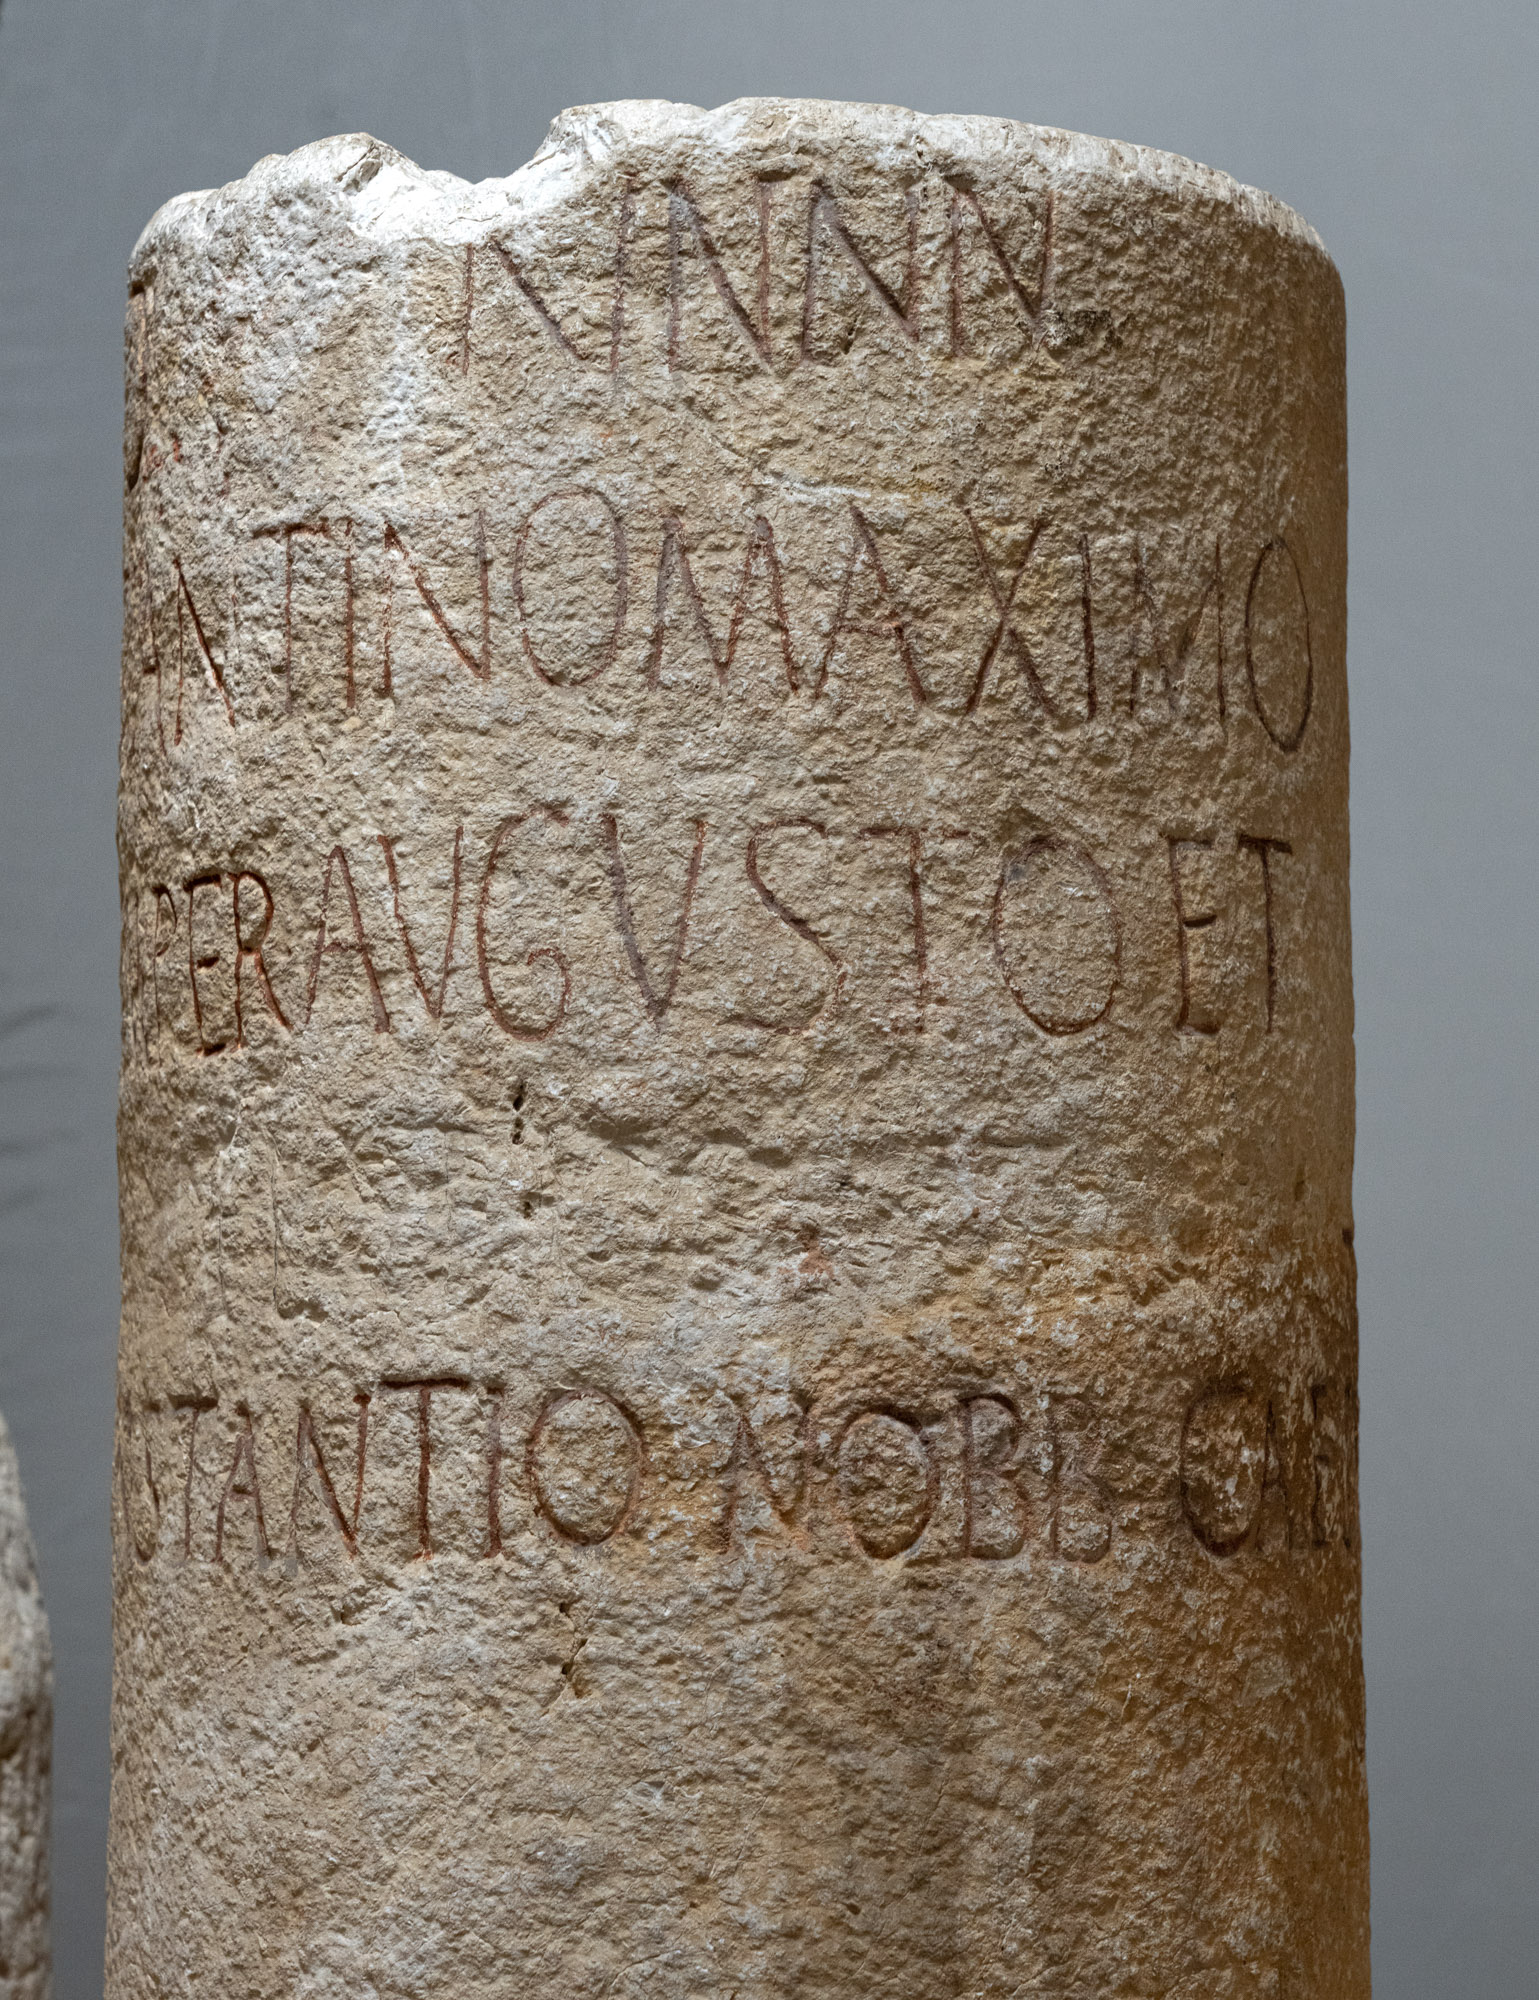 NNNN
ANTINO MAXIMO
PER AVGVSTO ET
STANTIO NOBB CAE